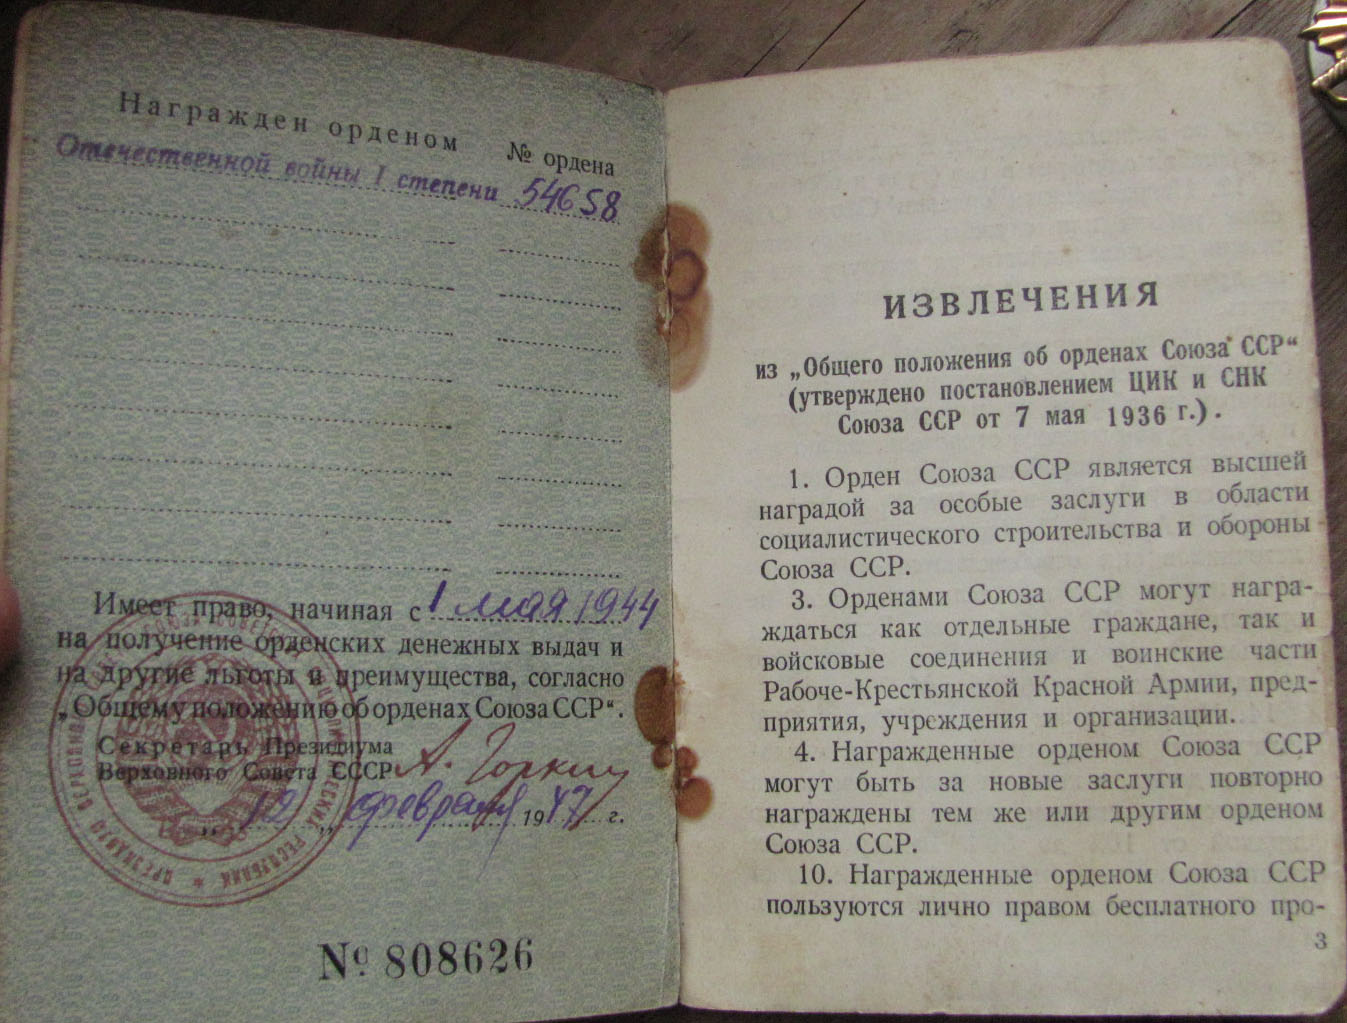 Награжден орденом
№ ордена
Отечественной войны I степени 54658
Имеет право, начиная с 1 мая 1944
на получение орденских денежных выдач и
на другие льготы и преимущества, согласно
„Общему положению об орденах Союза ССР“.
Секретарь Президиума
Верховного Совета СССР А. Горкин
„12„ февраля 1947 г.
№ 808626
ИЗВЛЕЧЕНИЯ
из „Общего положения об орденах Союза ССР“
(утверждено постановлением ЦИК и СНК
Союза ССР от 7 мая 1936 г.).
1. Орден Союза ССР является высшей
наградой за особые заслуги в области
социалистического строительства и обороны
Союза ССР.
3. Орденами Союза ССР могут награ-
ждаться как отдельные граждане, так и
войсковые соединения и воинские части
Рабоче-Крестьянской Красной Армии, пред-
приятия, учреждения и организации.
4. Награжденные орденом Союза ССР
могут быть за новые заслуги повторно
награждены тем же или другим орденом
Союза ССР.
10. Награжденные орденом Союза ССР
пользуются лично правом бесплатного про-
3